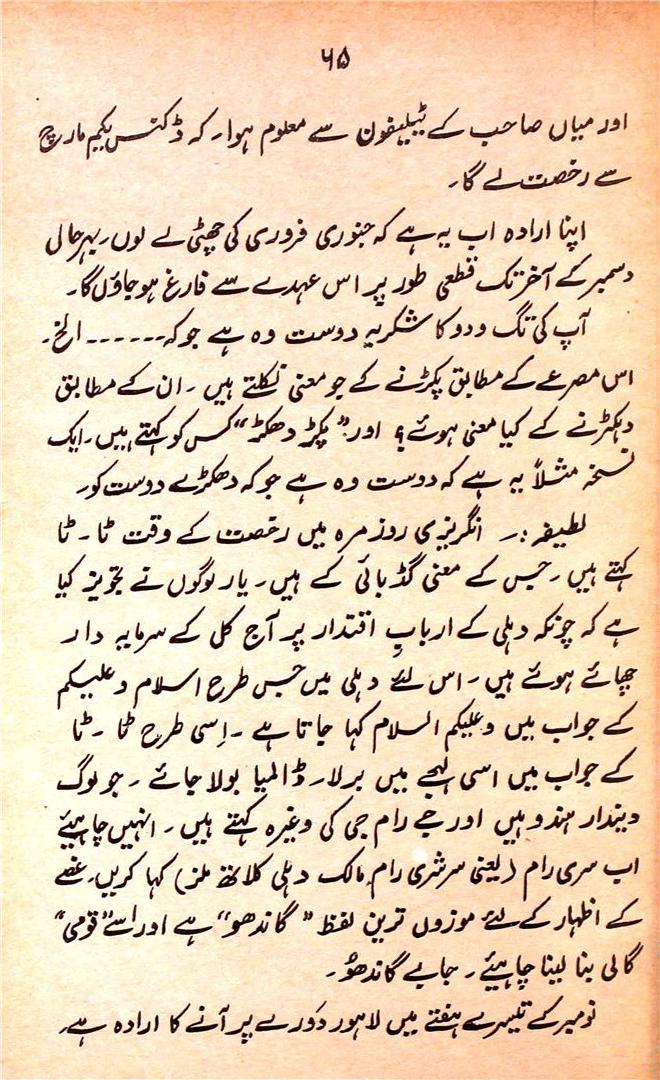 ۶۵
اور میاں صاحب کے ٹیلیفون سے معلوم ہوا۔ کہ ڈکنس یکم مارچ
سے رخصت لے گا۔
اپنا ارادہ اب یہ ہے کہ جنوری فروری کی چھٹی لے لوں۔ بہرحال
دسمبر کے آخر تک قطعی طور پر اس عہدے سے فارغ ہو جاؤں گا۔
آپ کی تگ و دو کا شکریہ دوست وہ ہے جو کہ۔۔۔۔۔۔ الخ۔
اس مصرعے کے مطابق پکڑنے کے جو معنی نکلتے ہیں۔ ان کے مطابق
دھکڑنے کے کیا معنی ہوئے؟ اور "پکڑ دھکڑ" کس کو کہتے ہیں۔ ایک
نسخہ مثلاً یہ ہے کہ دوست وہ ہے جو کہ دھکڑے دوست کو۔
لطیفہ:۔ انگریزی روزمرہ میں رخصت کے وقت ٹا۔ ٹا
کہتے ہیں۔ جس کے معنی گڈ بائی کے ہیں۔ یار لوگوں نے تجویز کیا
ہے کہ چونکہ دہلی کے اربابِ اقتدار پر آج کل کے سرمایہ دار
چھائے ہوئے ہیں۔ اس لئے دہلی میں جس طرح اسلام وعلیکم
کے جواب میں وعلیکم السلام کہا جاتا ہے۔ اِسی طرح ٹا۔ ٹا
کے جواب میں اسی لہجے میں برلا۔ ڈالمیا بولا جائے۔ جو لوگ
دیندار ہندو ہیں اور جے رام جی کی وغیرہ کہتے ہیں۔ انہیں چاہیئے
اب سری رام (یعنی سر شری رام مالک دہلی کلاتھ ملز) کہا کریں۔ غصے
کے اظہار کے لئے موزوں ترین لفظ "گاندھو" ہے اور اسے "قومی"
گالی بنا لینا چاہیئے۔ جابے گاندھُو۔
نومبر کے تیسرے ہفتے میں لاہور دَورے پر آنے کا ارادہ ہے۔